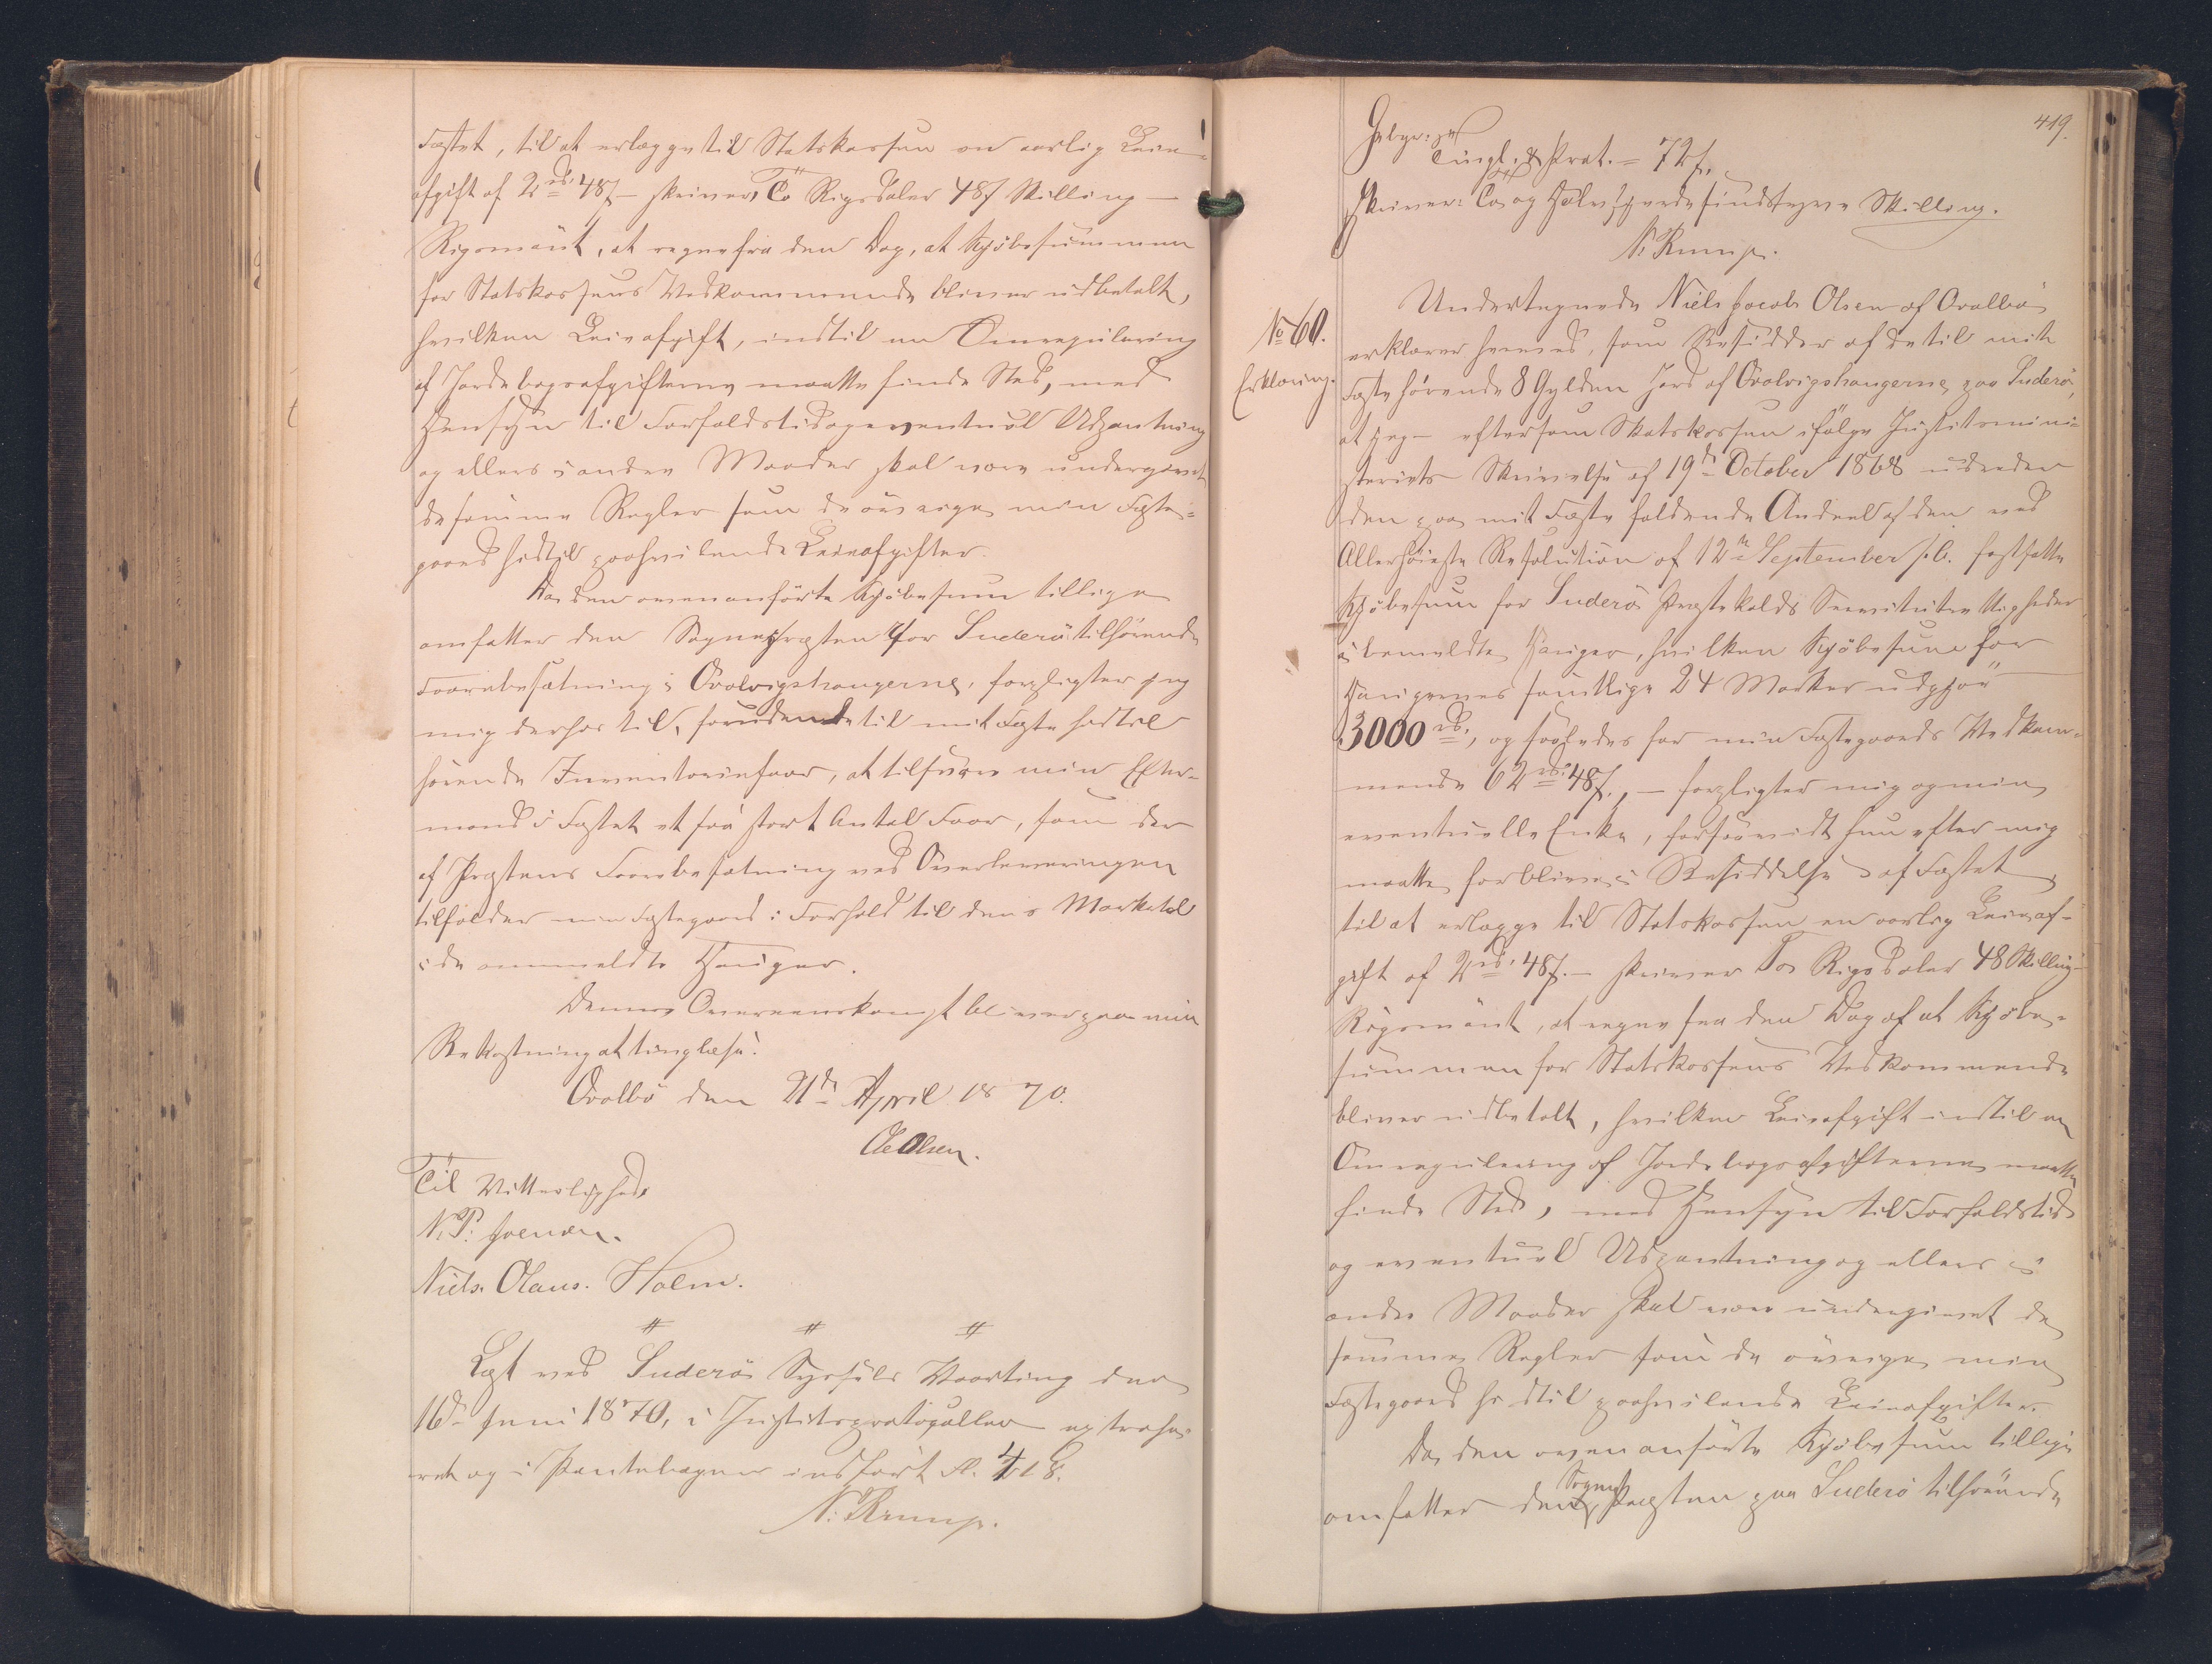 Fæstet, til at erlægge til Statskassen en aarlig Leie-
afgift af 2 rd. 48 s. — skriver To Rigsdaler 48 s Skilling —
Rigsmønt, at regne fra den Dag, at Kjöbesummen
for Statskassens Vedkommende bliver udbetalt,
hvilken Leieafgift, indtil en Omregulering
af Jordebogsafgifterne maatte finde Sted, med
Hensyn til Forfaldstid og eventuel Udpantning
og ellers i andre Maader skal være undergivet
de samme Regler som de övrige min Fæste-
gaard hidtil paahvilende Leieafgifter.
Da den ovenanførte Kjöbesum tillige
omfatter den Sognepræsten for Suderö tilhörende
Faarebesætning i Qvalvigshaugerne, forpligter jeg
mig derhos til, foruden de til mit Fæste hidtil
hörende Inventariefaar, at tilsvare min Efter-
mand i Fæstet et saa stort Antal Faar, som der
af Præstens Faarebesætning ved Overleveringen
tilfalder min Fæstegaard i Forhold til dens Marketal
i de ommeldte Hauger.
Denne Overeenskomst bliver paa min
Bekostning at tinglæse.
Qvalbö den 21de April 1870.
Ole Olsen.
Til Vitterlighed
N. P. Joensen.
Niels Olaus. Holm.
# # #
Læst ved Suderö Syssels Vaarting den
16de Juni 1870, i Justitsprotocollen extrahe-
ret og i Pantebogen indført Fl. 418.
N. Krump.
419.
Gebyr:
Tingl. & Prot. = 72 s.
skriver: To og Halvfjerdsindstyve Skilling.
N. Krump.
No 60.
Erklæring.
Undertegnede Niels Jacob Olsen af Qvalbö
erklærer herved, som Besidder af de til mit
Fæste hörende 8 Gylden Jord af Qvalvigshaugerne paa Suderö,
at jeg — eftersom Statskassen ifølge Justitsmini-
steriets Skrivelse af 19de October 1868 udreder
den paa mit Fæste faldende Andeel af den ved
Allerhöieste Resolution af 12te September s. A. fastsatte
Kjöbesum for Suderö Præstekalds Servitutrettigheder
i bemeldte Hauger, hvilken Kjöbesum for
Haugernes samtlige 24 Marker udgjör
3000 rd., og saaledes for min Fæstegaards Vedkom-
mende 62 rd. 48 s., — forpligter mig og min
eventuelle Enke, forsaavidt hun efter mig
maatte forblive i Besiddelse af Fæstet,
til at erlægge til Statskassen en aarlig Leieaf-
gift af 2 rd. 48 s. — skriver To Rigsdaler 48 Skilling —
Rigsmønt, at regne fra den Dag af at Kjöbe-
summen for Statskassens Vedkommende
bliver udbetalt, hvilken Leieafgift indtil en
Omregulering af Jordebogsafgifterne maatte
finde Sted, med Hensyn til Forfaldstid
og eventuel Udpantning og ellers i
andre Maader skal være undergivet de
samme Regler som de övrige min
Fæstegaard hidtil paahvilende Leieafgifter.
Da den ovenanförte Kjöbesum tillige
omfatter den Sogne Præsten paa Suderö tilhörende